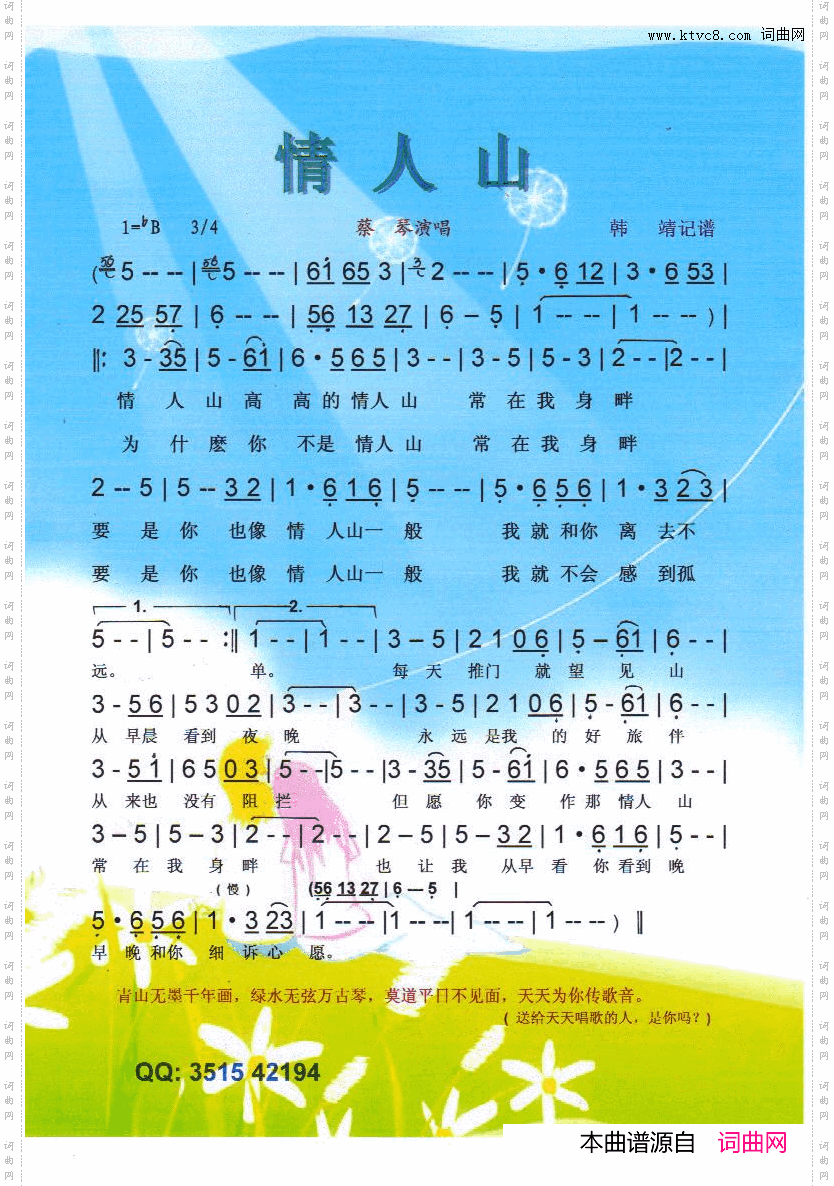 www.ktvc8.com 词曲网
情人山
1=♭B 3/4 蔡 琴演唱 韩 靖记谱
(5 -- -- | 5 -- -- | 61 65 3 | 2 -- -- | 5 · 6 12 | 3 · 6 53 |
2 25 57 | 6 -- -- | 56 13 27 | 6 – 5 | 1 -- -- | 1 -- -- ) |
‖: 3 - 35 | 5 - 61 | 6 · 5 6 5 | 3 - - | 3 - 5 | 5 - 3 | 2 - - | 2 - - |
情 人 山 高 高 的 情人 山 常 在 我 身 畔
为 什 麽 你 不是 情人 山 常 在 我 身 畔
2 -- 5 | 5 -- 3 2 | 1 · 6 1 6 | 5 -- -- | 5 · 6 5 6 | 1 · 3 2 3 |
要 是 你 也像 情 人山一 般 我 就 和你 离 去不
要 是 你 也像 情 人山一 般 我 就 不会 感 到孤
1. 2.
5 - - | 5 - - :‖ 1 - - | 1 - - | 3 – 5 | 2 1 0 6 | 5 – 61 | 6 - - |
远。 单。 每 天 推门 就 望 见 山
3 - 5 6 | 5 3 0 2 | 3 - - | 3 - - | 3 - 5 | 2 1 0 6 | 5 - 61 | 6 - - |
从 早晨 看到 夜 晚 永 远 是我 的 好 旅 伴
3 - 5 1 | 6 5 0 3 | 5 - - | 5 - - | 3 - 35 | 5 - 61 | 6 · 5 6 5 | 3 - - |
从 来也 没有 阻 拦 但 愿 你 变 作 那 情人 山
3 – 5 | 5 – 3 | 2 - - | 2 - - | 2 – 5 | 5 – 32 | 1 · 6 1 6 | 5 - - |
常 在 我 身 畔 也 让 我 从早 看 你 看到 晚
(慢) (56 13 27 | 6 — 5 |
5 · 6 5 6 | 1 · 3 23 | 1 -- -- | 1 -- -- | 1 -- -- | 1 -- -- ) ‖
早 晚和你 细 诉心 愿。
青山无墨千年画，绿水无弦万古琴，莫道平日不见面，天天为你传歌音。
( 送给天天唱歌的人，是你吗？)
QQ: 3515 42194
本曲谱源自 词曲网